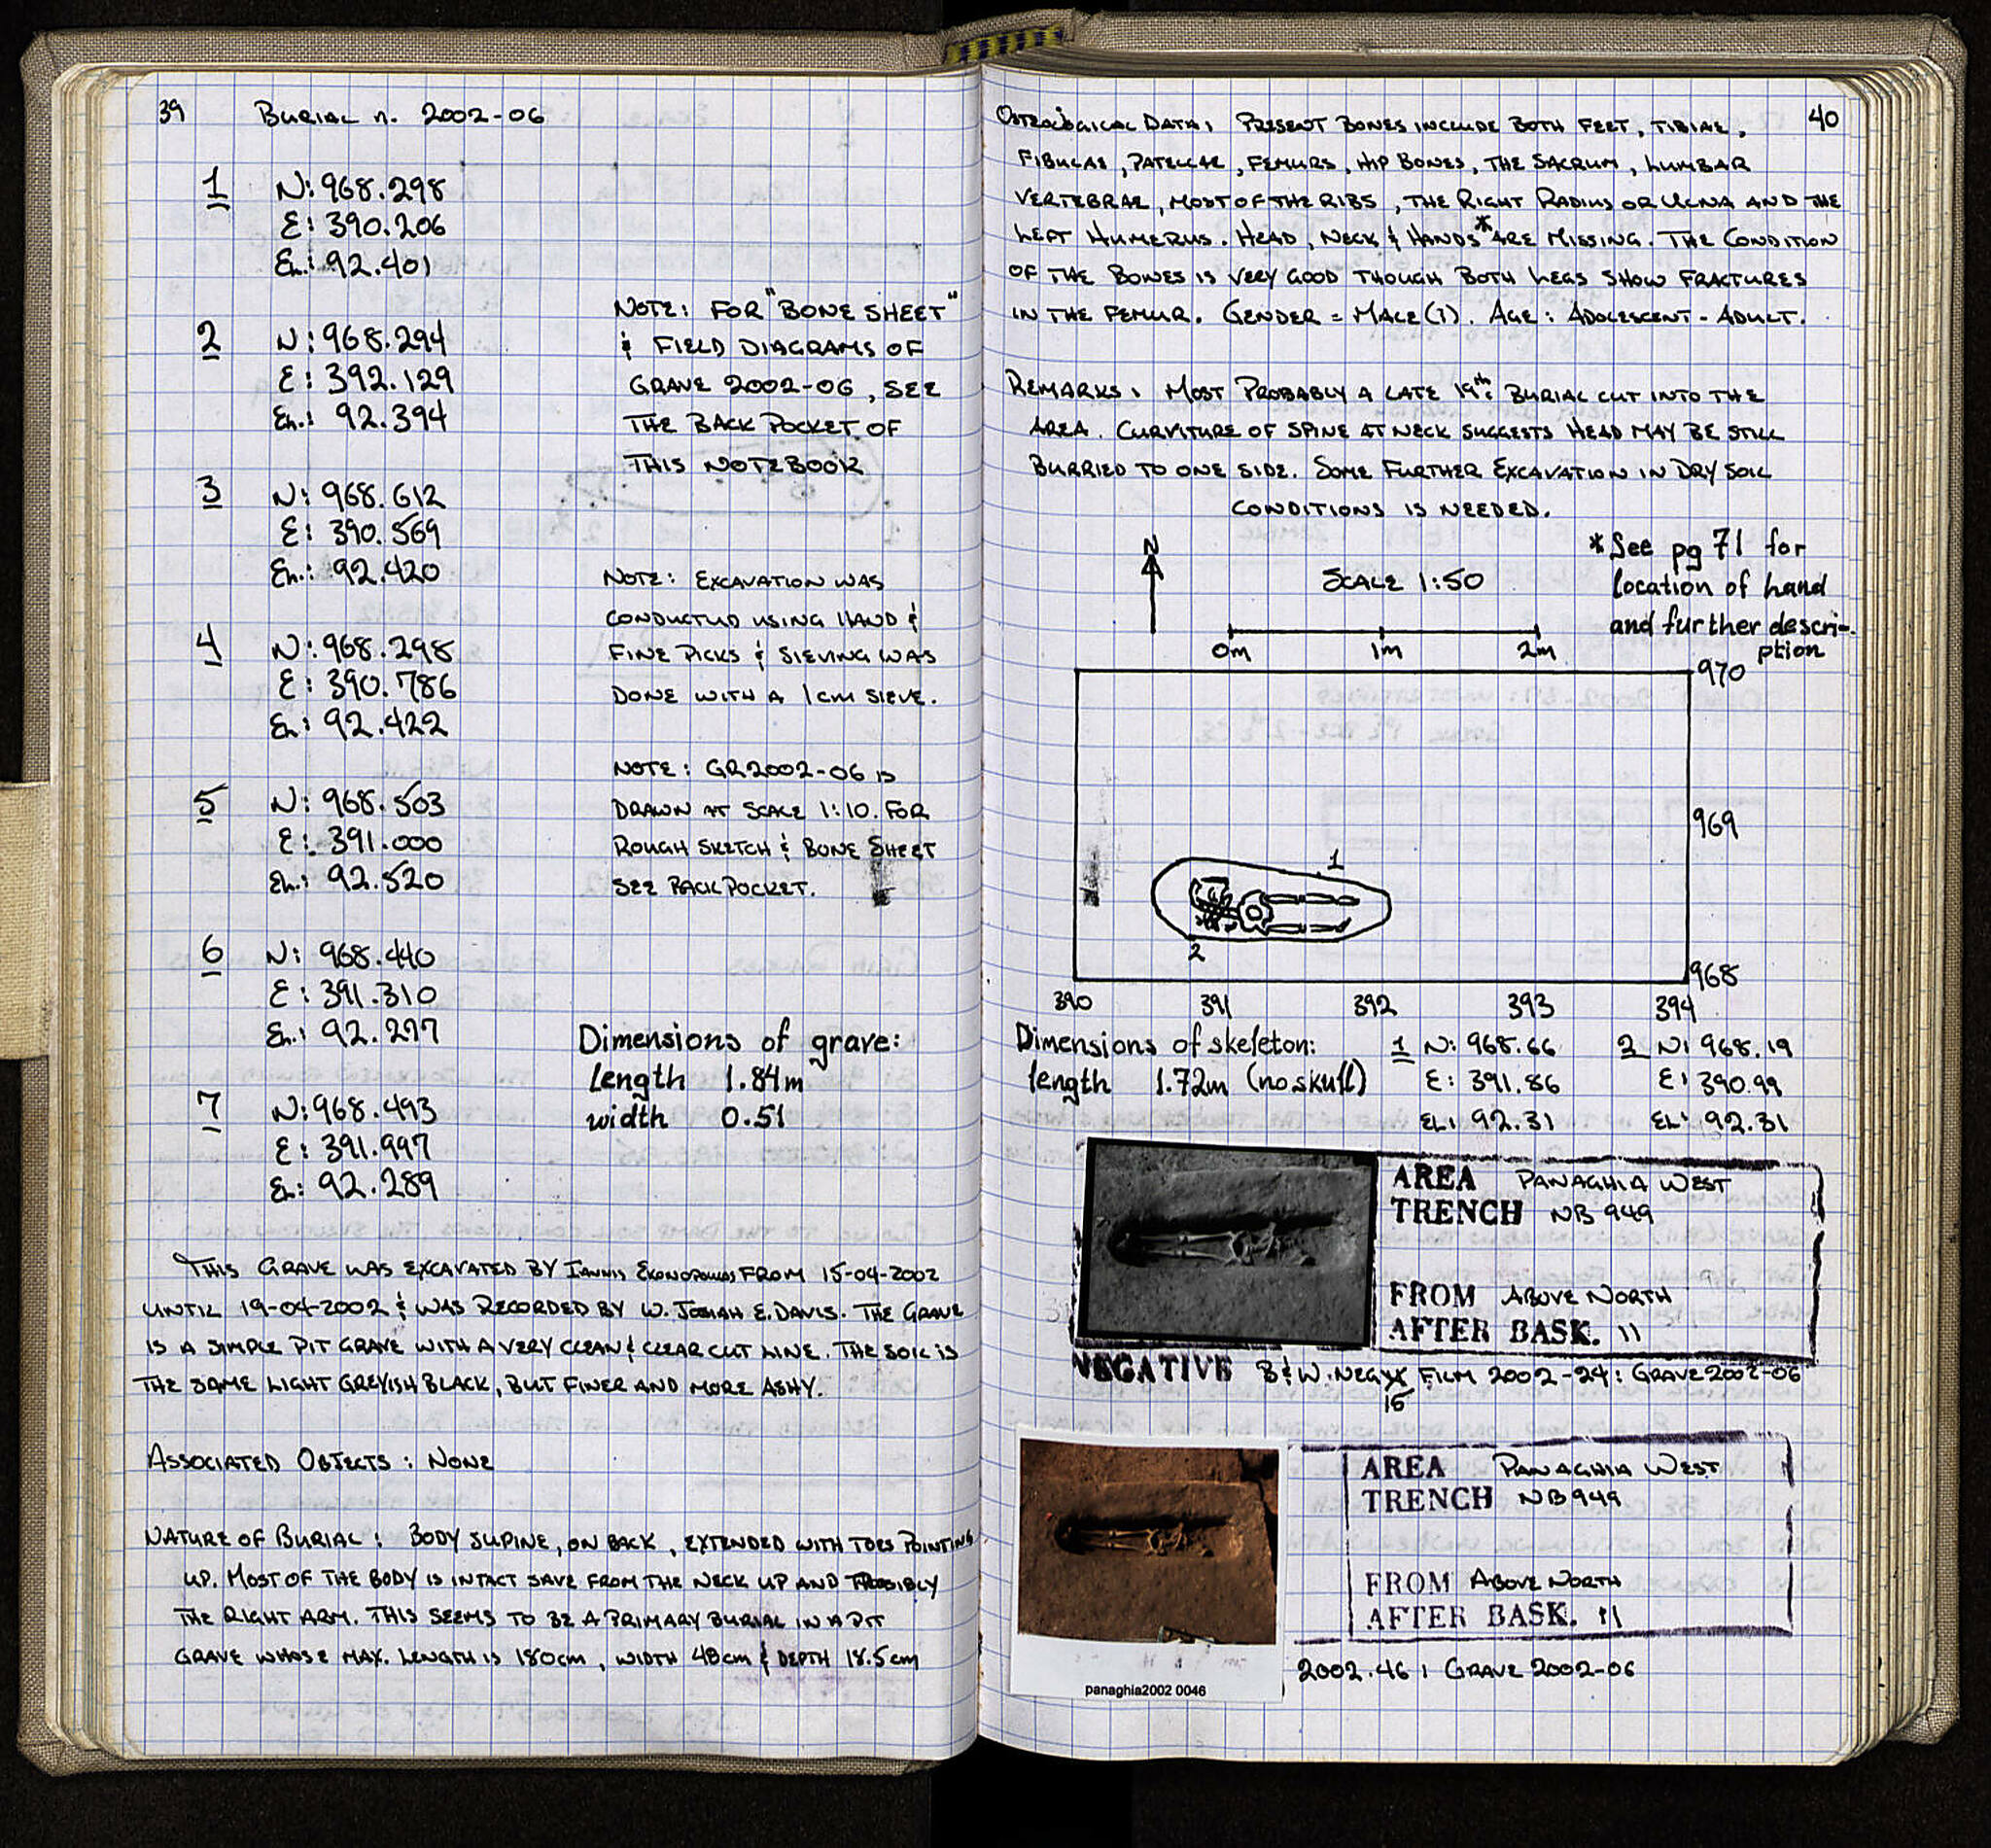 39 Burial n. 2002-06
1 N: 968.298
E: 390.206
El.: 92.401
2 N: 968.294
E: 392.129
El.: 92.394
3 N: 968.612
E: 390.569
El.: 92.420
4 N: 968.298
E: 390.786
El.: 92.422
5 N: 968.503
E: 391.000
El.: 92.520
6 N: 968.440
E: 391.310
El.: 92.277
7 N: 968.493
E: 391.997
El.: 92.289
Note: For "Bone Sheet"
& Field Diagrams of
Grave 2002-06, see
the back pocket of
this notebook
Note: Excavation was
conducted using hand &
fine picks & sieving was
done with a 1cm sieve.
Note: GR2002-06 is
drawn at scale 1:10. For
rough sketch & Bone Sheet
see back pocket.
Dimensions of grave:
Length 1.84m
width 0.51
This Grave was excavated by Iannis from 15-04-2002
until 19-04-2002 & was recorded by W. Josiah E. Davis. The Grave
is a simple pit grave with a very clean & clear cut line. The soil is
the same light greyish black, but finer and more ashy.
Associated Objects: None
Nature of Burial: Body supine, on back, extended with toes pointing
up. Most of the body is intact save from the neck up and possibly
the right arm. This seems to be a primary burial in a pit
grave whose max. length is 180cm, width 48cm & depth 18.5cm
40
Osteological Data: Present bones include both feet, tibiae,
fibulae, patellae, femurs, hip bones, the sacrum, lumbar
vertebrae, most of the ribs, the right radius or ulna and the
left humerus. Head, neck & hands* are missing. The condition
of the bones is very good though both legs show fractures
in the femur. Gender = Male(?). Age: Adolescent - Adult.
Remarks: Most probably a late 19th c. burial cut into the
area. Curviture of spine at neck suggests head may be still
burried to one side. Some further excavation in dry soil
conditions is needed.
*See pg 71 for
location of hand
and further descri-
ption
N
Scale 1:50
0m 1m 2m
970
969
968
1
2
390 391 392 393 394
Dimensions of skeleton:
length 1.72m (no skull)
1 N: 968.66
E: 391.86
El: 92.31
2 N: 968.19
E: 390.99
El: 92.31
AREA Panaghia West
TRENCH NB 949
FROM Above North
AFTER BASK. 11
NEGATIVE B&W. Neg Film 2002-24: Grave 2002-06
15
AREA Panaghia West
TRENCH NB949
FROM Above North
AFTER BASK. 11
2002.46: Grave 2002-06
panaghia2002 0046